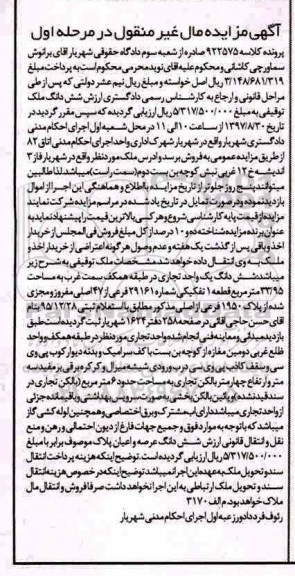 آگهی مزایده مال غیر منقول در مرحله اول
پرونده کلاسه ۹۲۲۵۷۵ صادره از شعبه سوم دادگاه حقوقی شهریار آقای برانوش
سماورچی کاشانی و محکوم علیه آقای نوید محرمی محکوم است به پرداخت مبلغ
۳/۱۴۸/۶۸۱/۳۱۹ ریال اصل خواسته و مبلغ ریال نیم عشر دولتی که پس از طی
مراحل قانونی و ارجاع به کارشناس رسمی دادگستری ارزش شش دانگ ملک
توقیفی به مبلغ ۵/۳۱۷/۵۰۰/۰۰۰ ریال ارزیابی گردیده که سپس مقرر گردید در
تاریخ ۱۳۹۷/۸/۳۰ از ساعت ۱۰ الی ۱۱ در محل شعبه اول اجرای احکام مدنی
دادگستری شهریار واقع در شهریار شهرک اداری واحد اجرای احکام مدنی اتاق ۸۲
از طریق مزایده عمومی به فروش برسد و آدرس ملک مورد نظر واقع در شهریار فاز ۳
اندیشه خ ۱۲ غربی نبش کوچه بن بست دوم (سمت راست) میباشد لذا طالبین
میتوانند پنج روز جلوتر از تاریخ مزایده با اطلاع و هماهنگی این اجرا از اموال
بازدید نموده و در صورت تمایل در تاریخ یاد شده در مراسم مزایده شرکت نمایند
مزایده از قیمت پایه کارشناسی شروع و هر کسی بالاترین قیمت را پیشنهاد نماید به
عنوان برنده مزایده شناخته ده و ۱۰ درصد از کل مبلغ فروش فی المجلس از خریدار
اخذ و باقی پس از گذشت یک هفته و عدم وصول هر گونه اعتراضی از خریدار اخذ و
ملک به وی انتقال داده خواهد شد مشخصات ملک توقیفی به شرح زیر
میباشد شش دانگ یک واحد تجاری در طبقه همکف سمت غرب به مساحت
۳۳/۹۵ متر مربع قطعه ۱ تفکیکی شماره ۲۹۱۶۱ فرعی از ۴۷ اصلی مفروز و مجزی
شده از پلاک ۱۹۵۰ فرعی از اصلی مذکور مطابق با استعلام ثبتی ۹۵/۱۲/۲۸ بنام
آقای حسن حاجی آقائی در صفحه ۲۵۸ دفتر ۱۶۲۴ شهریار ثبت گردیده است طبق
بازدید میدانی و معاینه فنی انجام شده واحد تجاری مورد نظر در طبقه همکف و واحد
ظلع غربی دومین مغازه از کوچه بن بست با کف سرامیک و بدنه دیوار کوب پی وی
سی و سقف کاذب پی وی سی درب ورودی شیشه میرال و کرکره برقی بر مفید سه
متر و ارتفاع چهار متر بالکن تجاری به مساحت حدود ۶ متر مربع (بالکن تجاری در
سند قید نشده) و پائین بالکن بخشی به صورت سرویس بهداشتی و باقیمانده جزئی
از واحد تجاری میباشد دارای مشترک برق اختصاصی و همچنین لوله کشی گاز
میباشد که با توجه به موارد فوق و جمیع جهات فارغ از دیون احتمالی و رهن و منع
نقل و انتقال قانونی ارزش شش دانگ عرصه و اعیان پلاک موصوف برابر با مبلغ
۵/۳۱۷/۵۰۰/۰۰۰ ریال ارزیابی گردیده است. توضیح اینکه هزینه پرداخت انتقال
سند و تحویل ملک به عهده این اجرا نمیباشد توضیح اینکه در خصوص هزینه انتقال
سند و تحویل ملک ارتباطی به این اجرا نخواهد داشت صرفا فروش و انتقال مال
ملاک خواهد بود. م الف ۳۱۷۰
رئوف فرد دادورز عه اول اجرای احکام مدنی شهریار